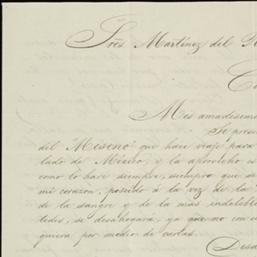 Sres. Martinez del
Mis amadisimos
Se prese
del "Meseno" que hace viaje para
lado de Mexico, y la aprovecho
como lo hace siempre, siempre que se
mi corazon, poseido á la vez de la
de la sangre y de la mas indeleble
tedes, se desahogará, ya que no en
quiera por medio de cartas.
Desde